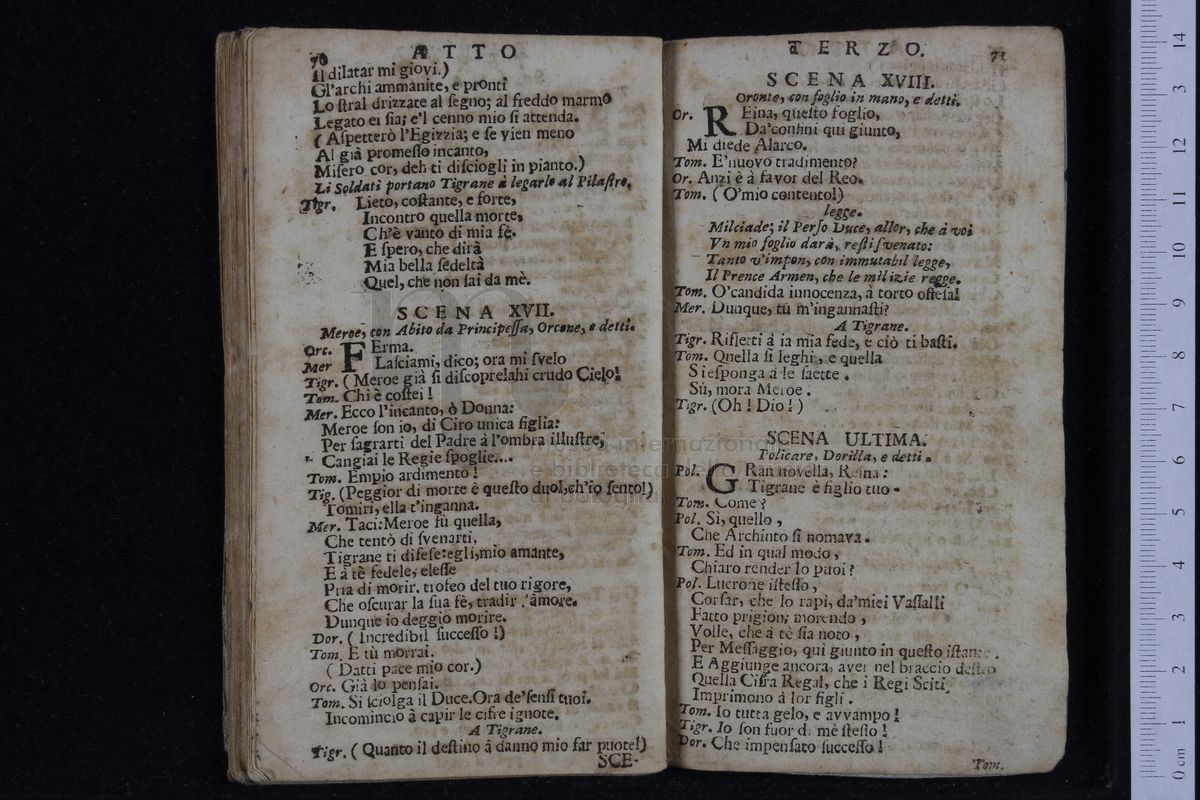 70 ATTO
Il dilatar mi giovi.)
Gl'archi ammanite, e pronti
Lo ſtral drizzate al ſegno; al freddo marmo
Legato ei ſia; e'l cenno mio ſi attenda.
( Aſpetterò l'Egizzia; e ſe vien meno
Al già promeſſo incanto,
Miſero cor, deh ti diſciogli in pianto.)
Li Soldati portano Tigrane à legarlo al Pilaſtro.
Tigr. Lieto, coſtante, e forte,
Incontro quella morte,
Ch'è vanto di mia fè.
E ſpero, che dirà
Mia bella fedeltà
Quel, che non ſai da mè.
SCENA XVII.
Meroe, con Abito da Principeſſa, Orcone, e detti.
Orc. FErma.
Mer Laſciami, dico; ora mi ſvelo
Tigr. ( Meroe già ſi diſcopre!ahi crudo Cielo!
Tom. Chi è coſtei !
Mer. Ecco l'incanto, ò Donna:
Meroe ſon io, di Ciro unica figlia:
Per ſagrarti del Padre à l'ombra illuſtre,
Cangiai le Regie ſpoglie...
Tom. Empio ardimento !
Tig. (Peggior di morte è queſto duol,ch'io ſento!)
Tomiri, ella t'inganna.
Mer. Taci:Meroe fù quella,
Che tentò di ſvenarti.
Tigrane ti difeſe:egli,mio amante,
E à tè fedele, eleſſe
Pria di morir, trofeo del tuo rigore,
Che oſcurar la ſua fè, tradir l'amore.
Dunque io deggio morire.
Dor. ( Incredibil ſucceſſo !)
Tom. E tù morrai.
( Datti pace mio cor.)
Orc. Già lo penſai.
Tom. Si ſciolga il Duce.Ora de'ſenſi tuoi.
Incomincio à capir le cifre ignote.
A Tigrane.
Tigr. ( Quanto il deſtino à danno mio far puote!)
SCE-
TERZO. 71
SCENA XVIII.
Oronte, con foglio in mano, e detti.
Or. REina, queſto foglio,
Da'confini qui giunto,
Mi diede Alarco.
Tom. E'nuovo tradimento?
Or. Anzi è à favor del Reo.
Tom. ( O'mio contento!)
legge.
Milciade; il Perſo Duce, allor, che à voi
Vn mio foglio darà, reſti ſvenato:
Tanto v'impon, con immutabil legge,
Il Prence Armen, che le milizie regge.
Tom. O'candida innocenza, à torto offeſa!
Mer. Dunque, tù m'ingannaſti?
A Tigrane.
Tigr. Rifletti à la mia fede, e ciò ti baſti.
Tom. Quella ſi leghi, e quella
Si eſponga à le ſaette .
Sù, mora Meroe .
Tigr. (Oh ! Dio ! )
SCENA ULTIMA.
Policare, Dorilla, e detti .
Pol. GRan novella, Reina :
Tigrane è figlio tuo -
Tom. Come ?
Pol. Sì, quello ,
Che Archinto ſi nomava .
Tom. Ed in qual modo ,
Chiaro render lo puoi ?
Pol. Lucrone iſteſſo ,
Corſar, che lo rapì, da'miei Vaſſalli
Fatto prigion; morendo ,
Volle, che à tè ſia noto ,
Per Meſſaggio, qui giunto in queſto iſtante .
E Aggiunge ancora, aver nel braccio deſtro
Quella Cifra Regal, che i Regi Sciti
Imprimono à lor figli .
Tom. Io tutta gelo, e avvampo !
Tigr. Io ſon fuor di mè ſteſſo !
Dor. Che impenſato ſucceſſo !
Tom.